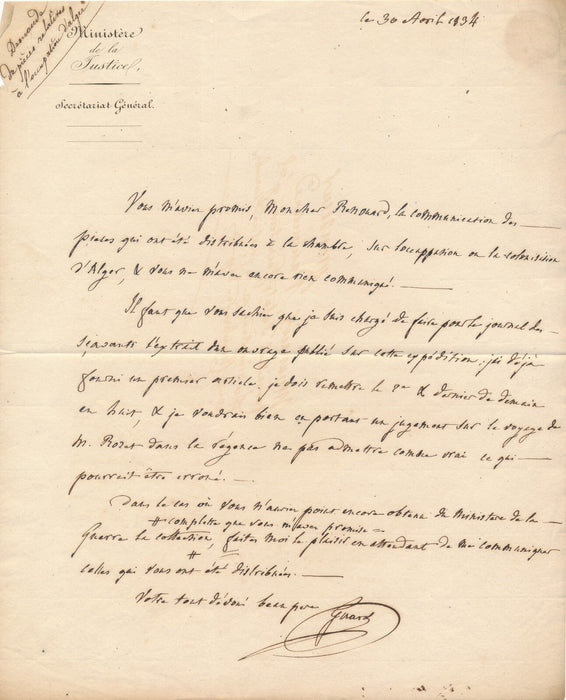 le 30 Avril 1834
Demande
de pièces relatives
à l'occupation d'alger
Ministère
de la
Justice.
Secrétariat Général.
Vous m'aviez promis, mon cher Renouard, la communication des
pieces qui ont été distribuées à la chambre, sur l'occupation ou la colonisation
d'Alger, & vous ne m'avez encore rien communiqué.
Il faut que vous sachiez que je suis chargé de faire pour le journal des
sçavants l'extrait d'un ouvrage publié sur cette expédition. j'ai déjà
fourni un premier article. je dois remettre le 2e & dernier de demain
en huit, & je voudrais bien en portant un jugement sur le voyage de
M. Rozet dans la régence ne pas admettre comme vrai ce qui
pourrait être erroné.
Dans le cas où vous n'auriez point encore obtenu du Ministère de la
# complette que vous m'avez promise =
Guerre la collection, faites moi le plaisir en attendant de me communiquer
#
celles qui vous ont été distribuées.
Votre tout dévoué beau pere
Girard